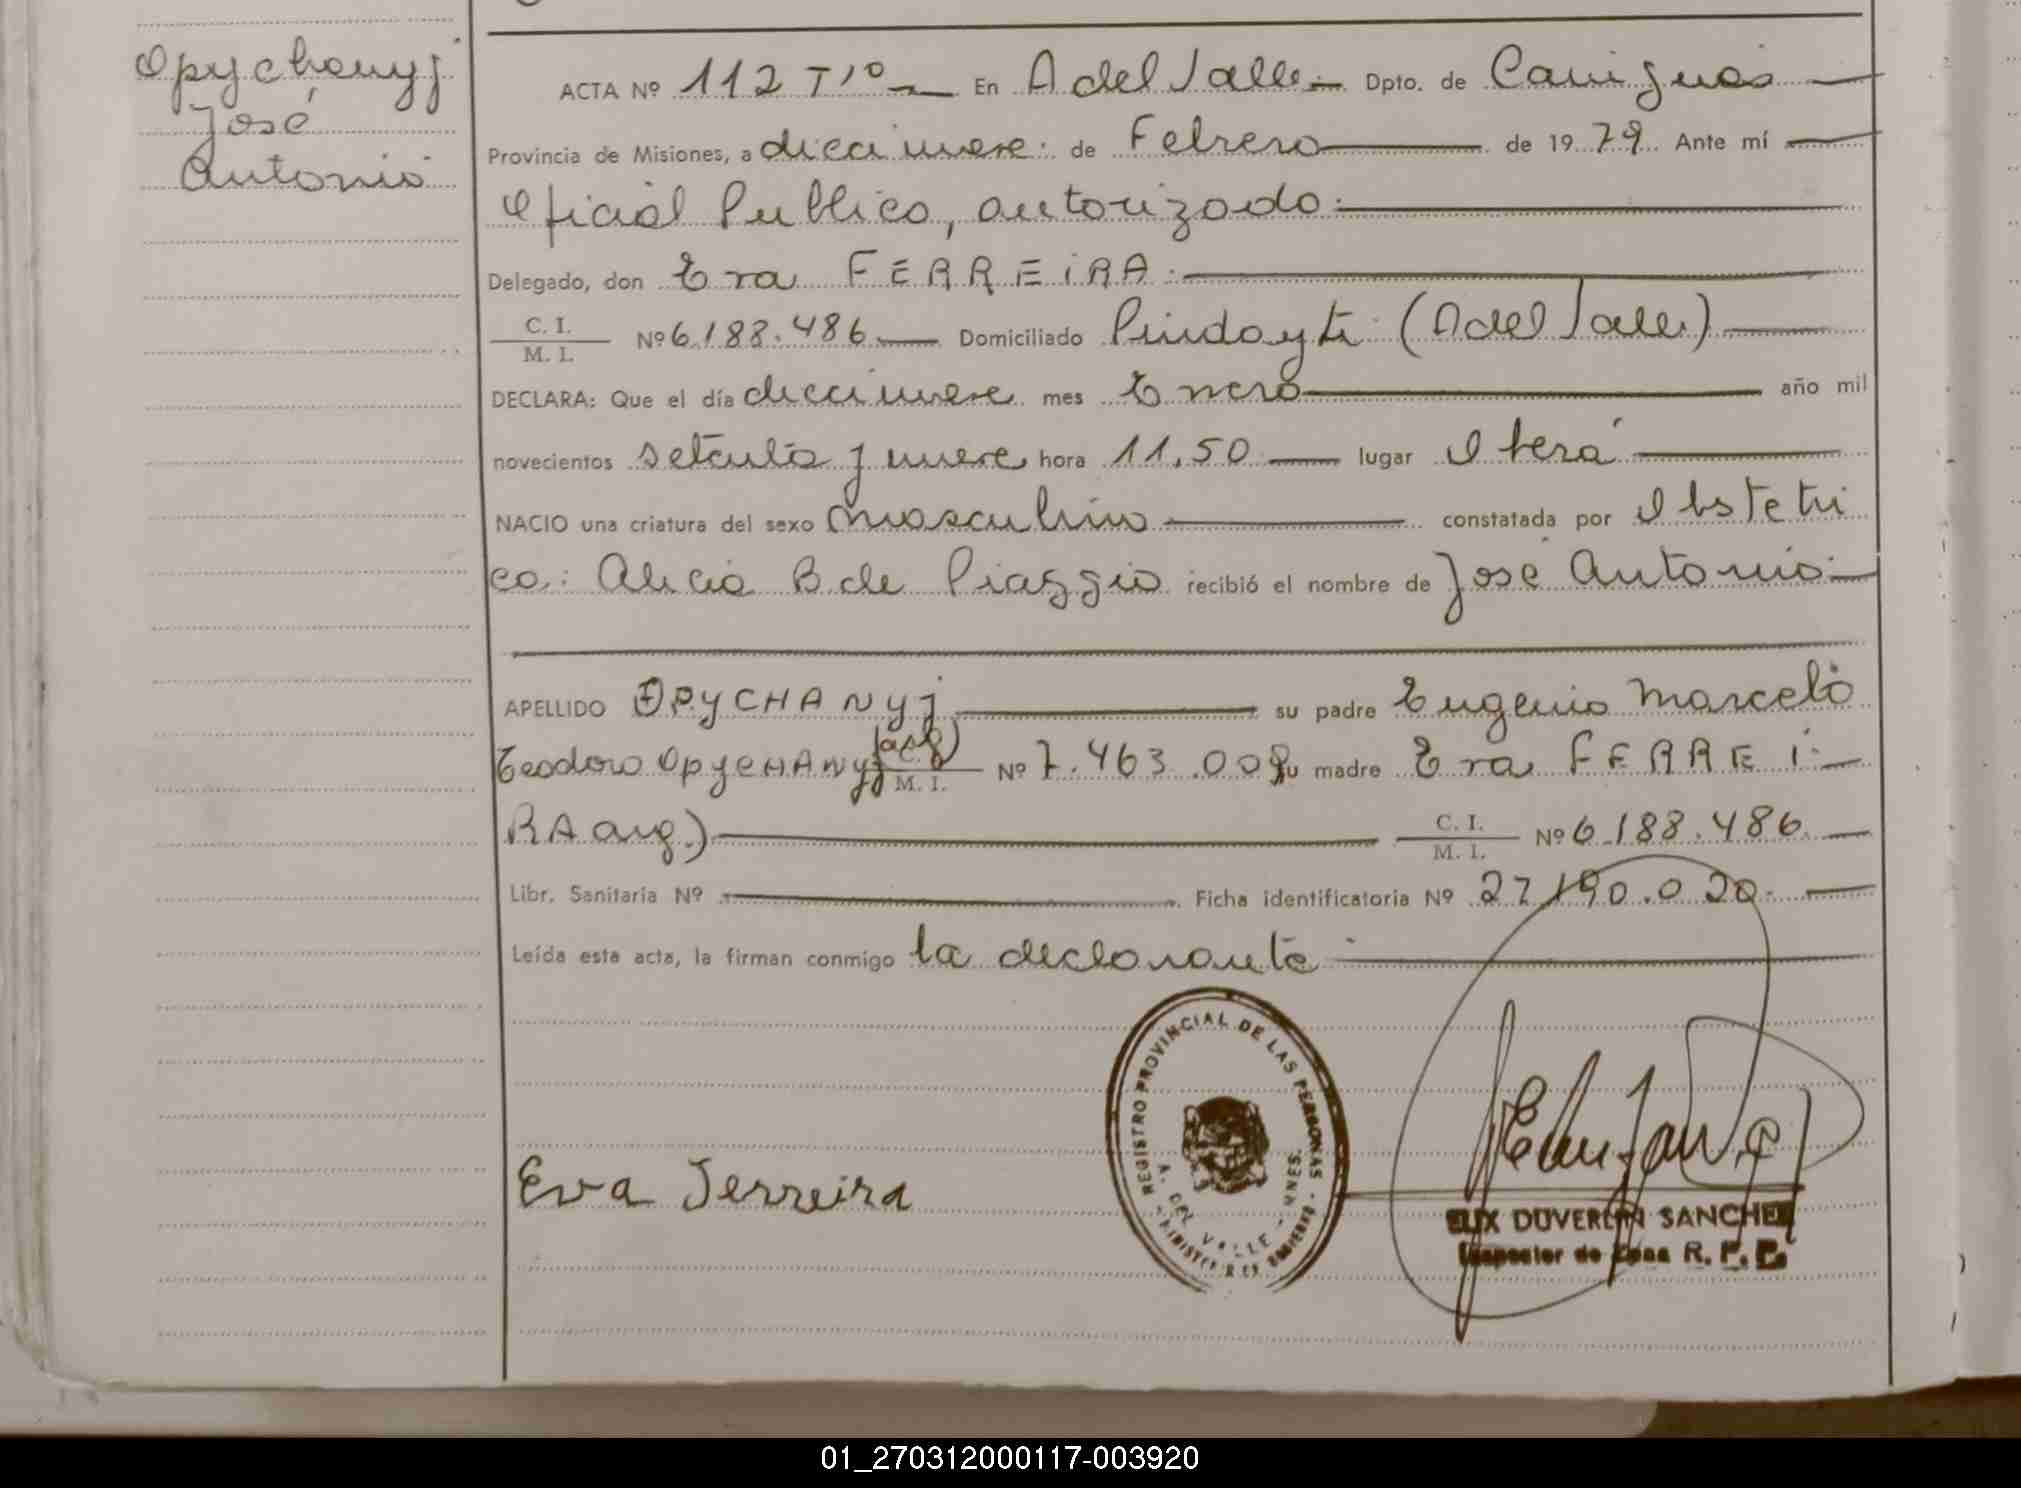 Opychanyj
José
Antonio
ACTA Nº 112 Tº En A del Valle Dpto. de Cainguás
Provincia de Misiones, a diecinueve de Febrero de 1979 Ante mí
Oficial Publico, autorizado:
Delegado, don Eva FERREIRA:
C. I.
M. I.
Nº 6.188.486 Domiciliado Pindayti (A del Valle)
DECLARA: Que el día diecinueve mes Enero año mil
novecientos setenta y nueve hora 11,50 lugar Oberá
NACIO una criatura del sexo masculino constatada por Obstetri
ca: Alicia B de Piaggio recibió el nombre de José Antonio
APELLIDO OPYCHANyj su padre Eugenio Marcelo
Teodoro OpyCHANyj (arg) C. I.
M. I.
Nº 7.463.009 su madre Eva FERREI
RA arg.) C. I.
M. I.
Nº 6.188.486
Libr. Sanitaria Nº Ficha identificatoria Nº 27.190.020
Leída esta acta, la firman conmigo la declarante
REGISTRO PROVINCIAL DE LAS PERSONAS
A. DEL VALLE - MNES.
Eva Ferreira
SANCHEZ
Inspector de Zona R. P. P.
01_270312000117-003920